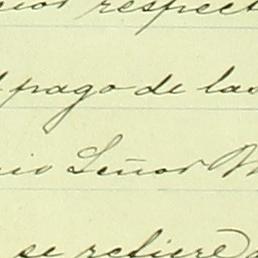 respect
pago de las
Señor
se refiere